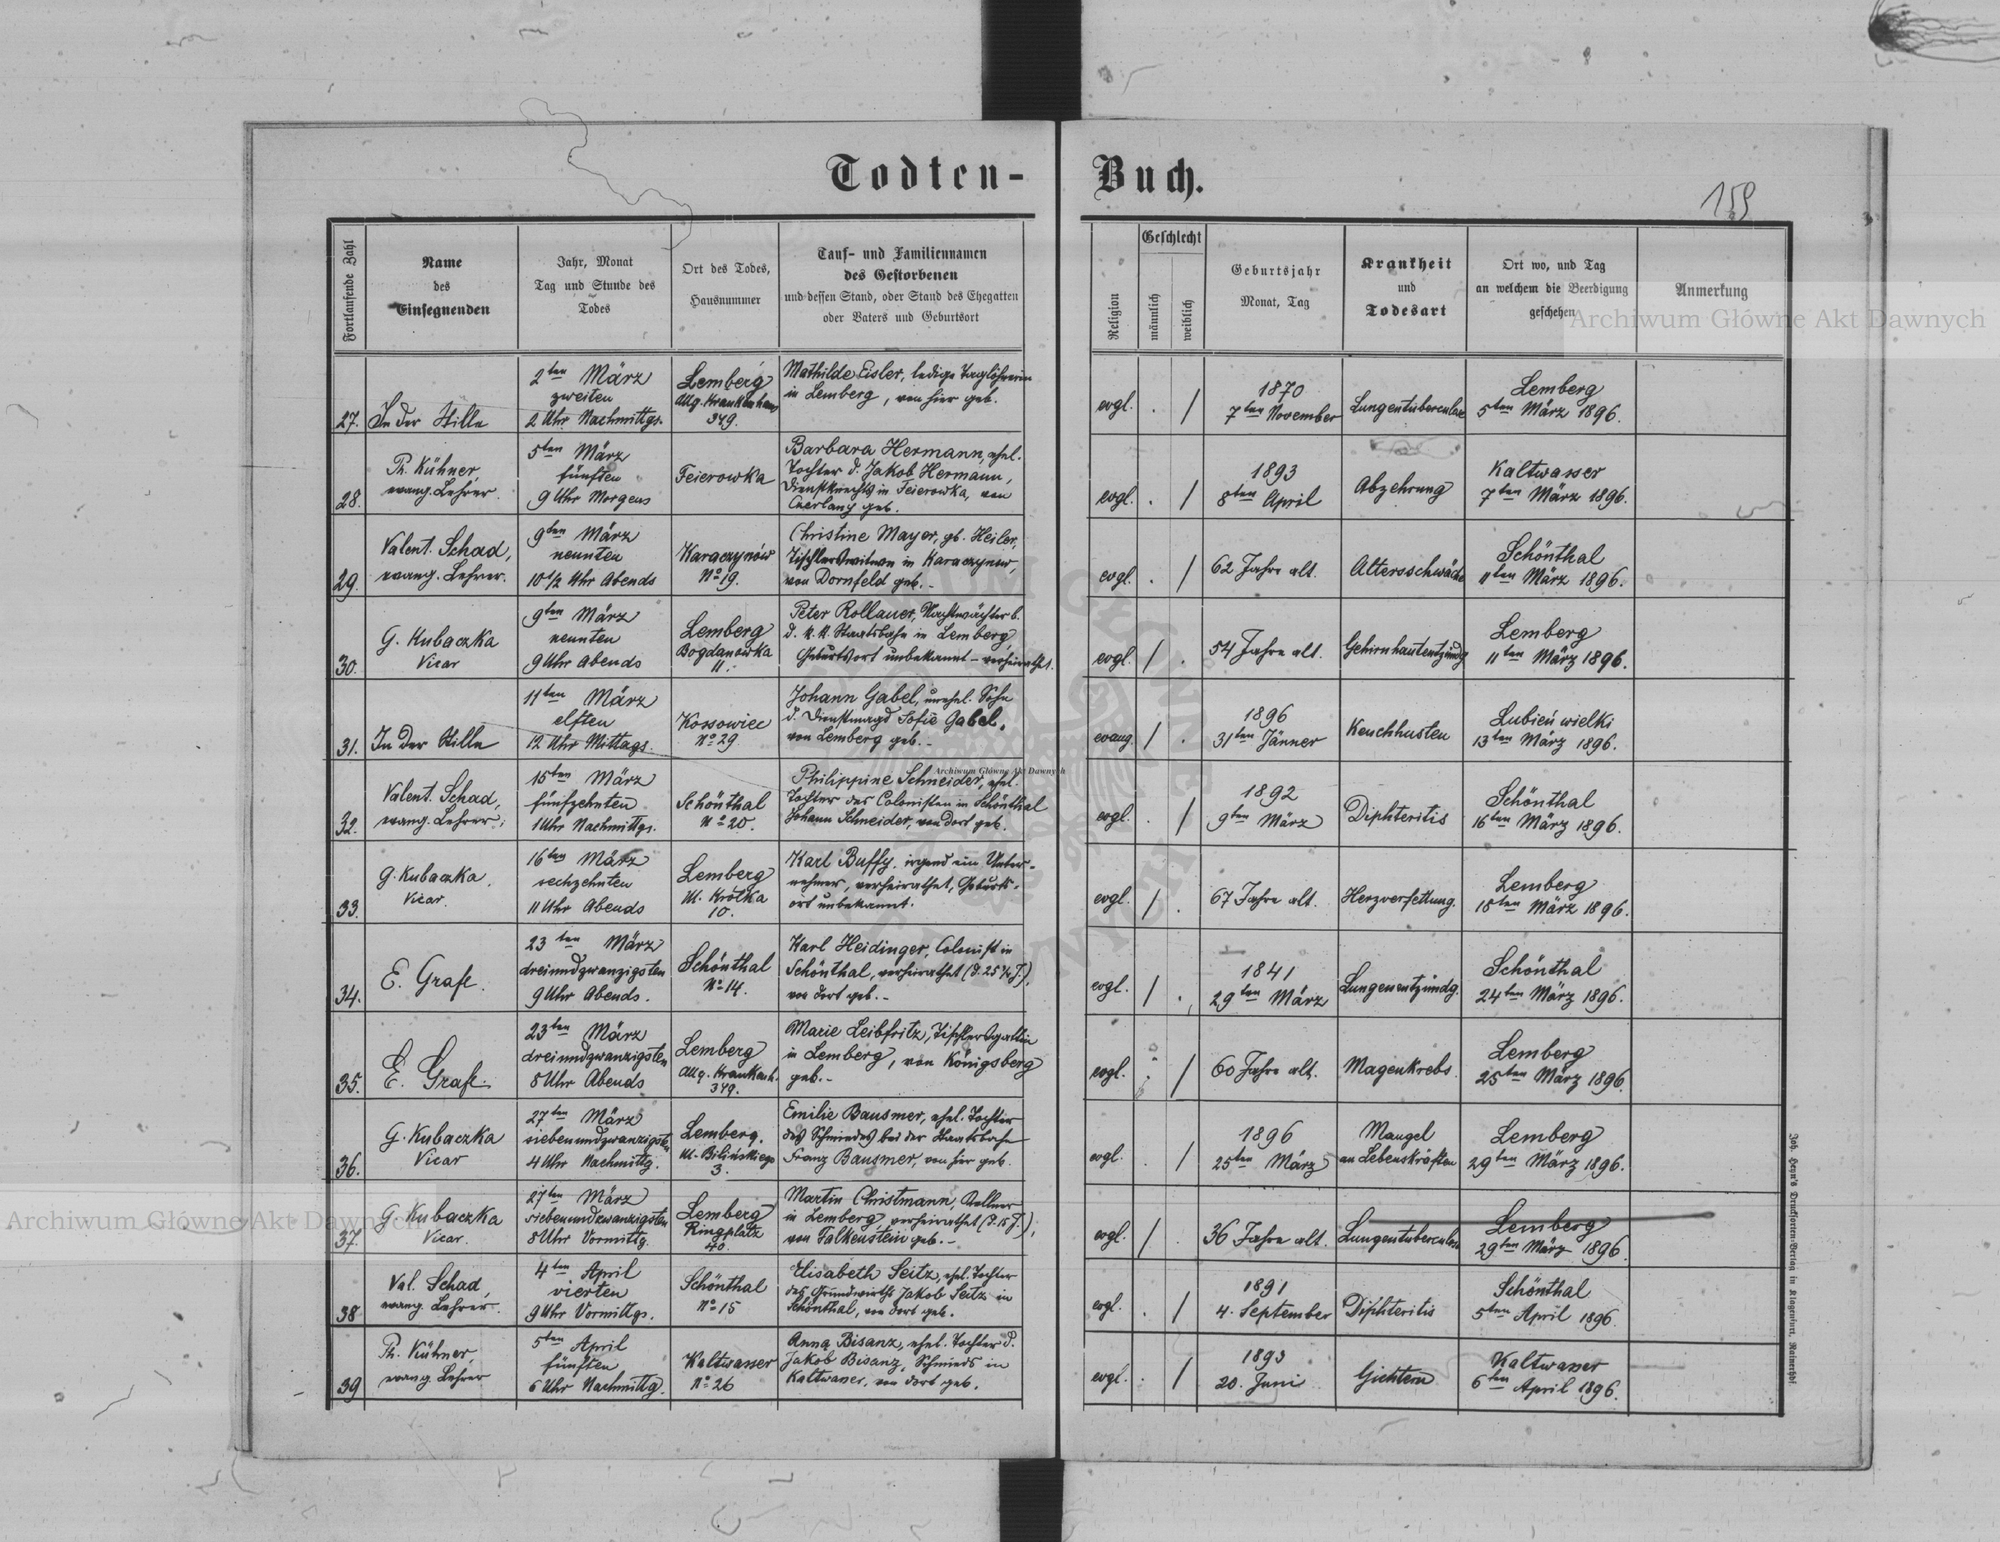 Todten- Buch.
159
Fortlaufende Zahl
Name
des
Einsegnenden
Jahr, Monat
Tag und Stunde des
Todes
Ort des Todes,
Hausnummer
Tauf- und Familiennamen
des Gestorbenen
und dessen Stand, oder Stand des Ehegatten
oder Vaters und Geburtsort
Religion
Geschlecht
männlich
weiblich
Geburtsjahr
Monat, Tag
Krankheit
und
Todesart
Ort wo, und Tag
an welchem die Beerdigung
geschehen
Anmerkung
Archiwum Główne Akt Dawnych
27.
In der Stille
2ten März
zweiten
2 Uhr Nachmittgs.
Lemberg
Allg. Krankenhaus
349.
Mathilde Eisler, ledige Taglöhnerin
in Lemberg, von hier geb.
evgl. . /
1870
7ten November
Lungentuberculose
Lemberg
5ten März 1896.
28.
Ph. Kühner,
evang. Lehrer.
5ten März
fünften
9 Uhr Morgens
Feierowka
Barbara Hermann, ehel.
Tochter d. Jakob Hermann,
Dienstknechts in Feierowka, von
Czerlany geb.
evgl. . /
1893
8ten April
Abzehrung
Kaltwasser
7ten März 1896.
29.
Valent. Schad,
evang. Lehrer.
9ten März
neunten
10 1/2 Uhr Abends
Karaczynów
No 19.
Christine Mayer, gb. Heiler,
Tischlerswitwe in Karaczynow,
von Dornfeld geb. -
evgl. . /
62 Jahre alt.
Altersschwäche
Schönthal
11ten März 1896.
30.
G. Kubaczka
Vicar
9ten März
neunten
9 Uhr Abends
Lemberg
Bogdanowka
11.
Peter Rollauer, Nachtwächter b.
d. k. k. Staatsbahn in Lemberg,
Geburtsort unbekannt - verheirathet.
evgl. / .
54 Jahre alt.
Gehirnhautentzündg
Lemberg
11ten März 1896.
31.
In der Stille
11ten März
elften
12 Uhr Mittags.
Kossowiec
No 29
Johann Gabel, unehel. Sohn
d. Dienstmagd Sofie Gabel,
von Lemberg geb. -
evang. / .
1896
31ten Jänner
Keuchhusten
Lubień wielki
13ten März 1896.
32.
Valent. Schad,
evang. Lehrer,
15ten März
fünfzehnten
1 Uhr Nachmittgs.
Schönthal
No 20.
Philippine Schneider, ehel.
Tochter des Colonisten in Schönthal
Johann Schneider, von dort geb.
evgl. . /
1892
9ten März
Diphteritis
Schönthal
16ten März 1896.
Archiwum Główne Akt Dawnych
33.
G. Kubaczka,
Vicar.
16ten März
sechzehnten
11 Uhr Abends
Lemberg
Ul. Krótka
10.
Karl Buffy, irgend ein Unter-
nehmer, verheirathet, Geburts-
ort unbekannt.
evgl. / .
67 Jahre alt.
Herzverfettung.
Lemberg
18ten März 1896.
34.
E. Grafe.
23ten März
dreiundzwanzigsten
9 Uhr Abends.
Schönthal
No 14.
Karl Heidinger, Colonist in
Schönthal, verheirathet (d. 25 1/4 J.),
von dort geb. -
evgl. / .
1841
29ten März
Lungenentzündg.
Schönthal
24ten März 1896.
35.
E. Grafe.
23ten März
dreiundzwanzigsten
8 Uhr Abends
Lemberg
Allg. Krankenh.
349.
Marie Leibfritz, Tischlersgattin
in Lemberg, von Königsberg
geb. -
evgl. . /
60 Jahre alt.
Magenkrebs.
Lemberg
25ten März 1896.
36.
G. Kubaczka
Vicar
27ten März
siebenundzwanzigsten
4 Uhr Nachmittg.
Lemberg.
Ul. Bilińskiego
3.
Emilie Bausmer, ehel. Tochter
des Schmiedes bei der Staatsbahn
Franz Bausmer, von hier geb.
evgl. . /
1896
25ten März
Mangel
an Lebenskräften
Lemberg
29ten März 1896.
37.
G. Kubaczka
Vicar.
27ten März
siebenundzwanzigsten
8 Uhr Vormittg.
Lemberg
Ringplatz
40.
Martin Christmann, Kellner
in Lemberg, verheirathet (d. 15 J.);
von Falkenstein geb. -
evgl. / .
36 Jahre alt.
Lungentuberculose
Lemberg
29ten März 1896.
Archiwum Główne Akt Dawnych
38
Val. Schad,
evang. Lehrer.
4ten April
vierten
9 Uhr Vormittgs.
Schönthal
No 15
Elisabeth Seitz, ehel. Tochter
des Grundwirths Jakob Seitz in
Schönthal, von dort geb.
evgl. . /
1891
4. September
Diphteritis
Schönthal
5ten April 1896.
39
Ph. Kühner,
evang. Lehrer
5ten April
fünften
6 Uhr Nachmittg.
Kaltwasser
No 26
Anna Bisanz, ehel. Tochter d.
Jakob Bisanz, Schmieds in
Kaltwasser, von dort geb.
evgl. . /
1893
20. Juni
Gichtern
Kaltwasser
6ten April 1896.